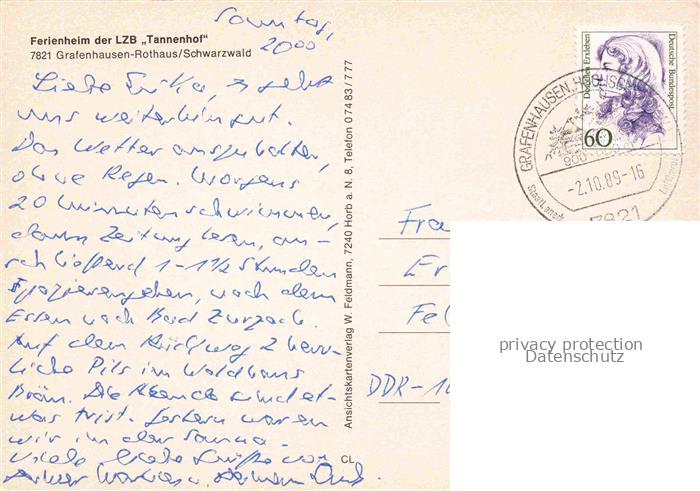 Sonntag,
20⁰⁰
Ferienheim der LZB „Tannenhof"
7821 Grafenhausen-Rothaus/Schwarzwald
Liebe Erika, es geht
uns weiterhin gut.
Das Wetter ausgehalten,
ohne Regen. Morgens
20 Minuten schwimmen,
dann Zeitung lesen, an-
schließend 1-1½ Stunden
spazierengehen, nach dem
Essen nach Bad Zurzach.
Auf dem Rückweg 2 herr-
liche Pils im Waldhaus
Bräu. Die Abende sind et-
was trist. Gestern waren
wir in der Sauna.
Viele liebe Grüße von
Ansichtskartenverlag W. Feldmann, 7240 Horb a. N. 8, Telefon 0 74 83 / 7 77
CL
Dorothea Erxleben
Deutsche Bundespost
60
GRAFENHAUSEN, HOCHSCHW
900
-2.10.89-16
7821
Fra
Er
Fel
DDR-10
privacy protection
Datenschutz